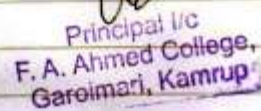 Principal I/c
F. A. Ahmed College,
Garoimari, Kamrup